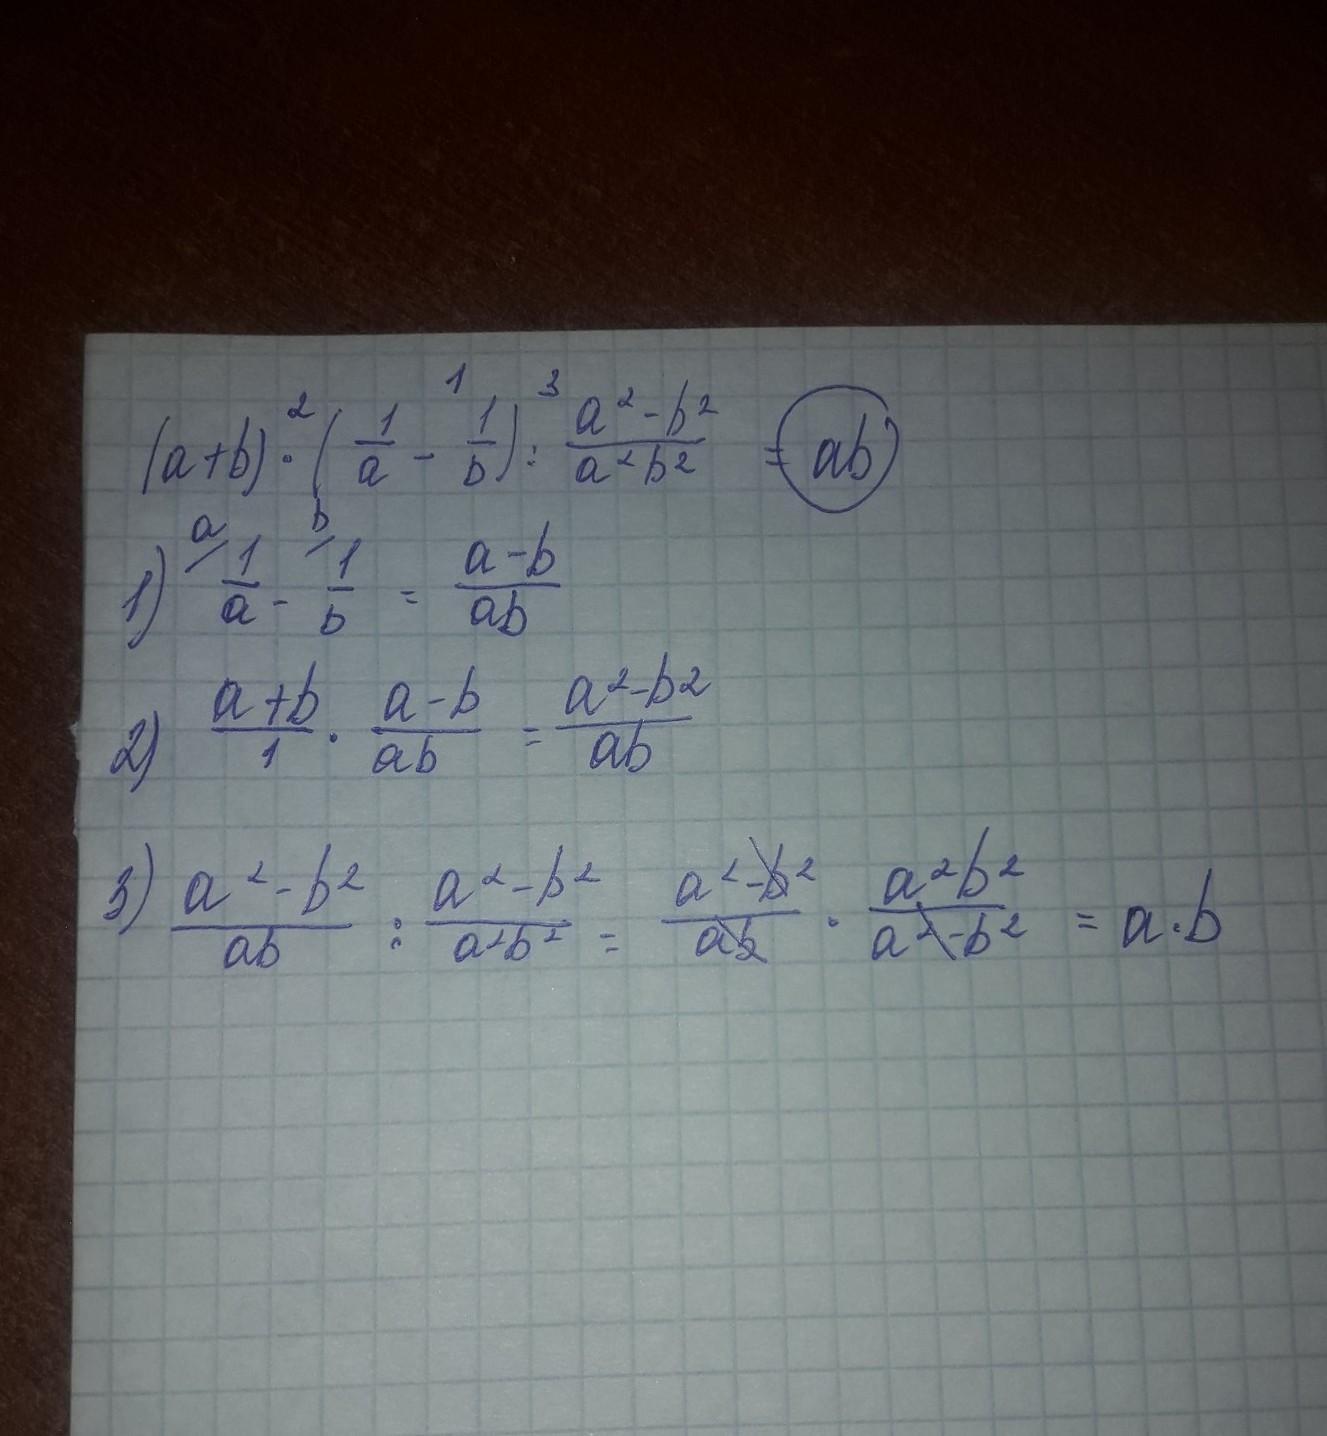 (a+b) ·² (1/a -¹ 1/b) :³ (a²-b²)/(a²b²) = ab
1) ᵃ⁄ 1/a - ᵇ⁄ 1/b = (a-b)/(ab)
2) (a+b)/1 · (a-b)/(ab) = (a²-b²)/(ab)
3) (a²-b²)/(ab) : (a²-b²)/(a²b²) = (a²-b²)/(ab) · (a²b²)/(a²-b²) = a·b